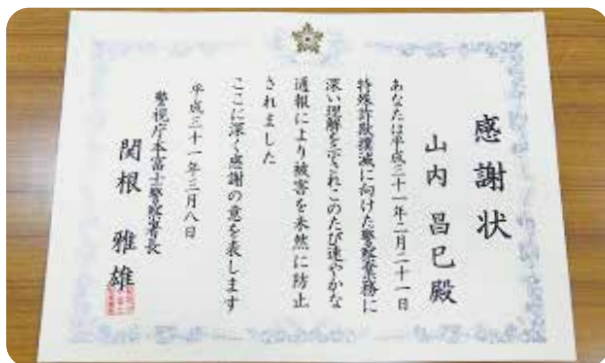 感謝状
山内 昌巳 殿
あなたは平成三十一年二月二十一日
特殊詐欺撲滅に向けた警察業務に
深い理解を示されこのたび速やかな
通報により被害を未然に防止
されました
ここに深く感謝の意を表します
平成三十一年三月八日
警視庁本富士警察署長
関根 雅雄